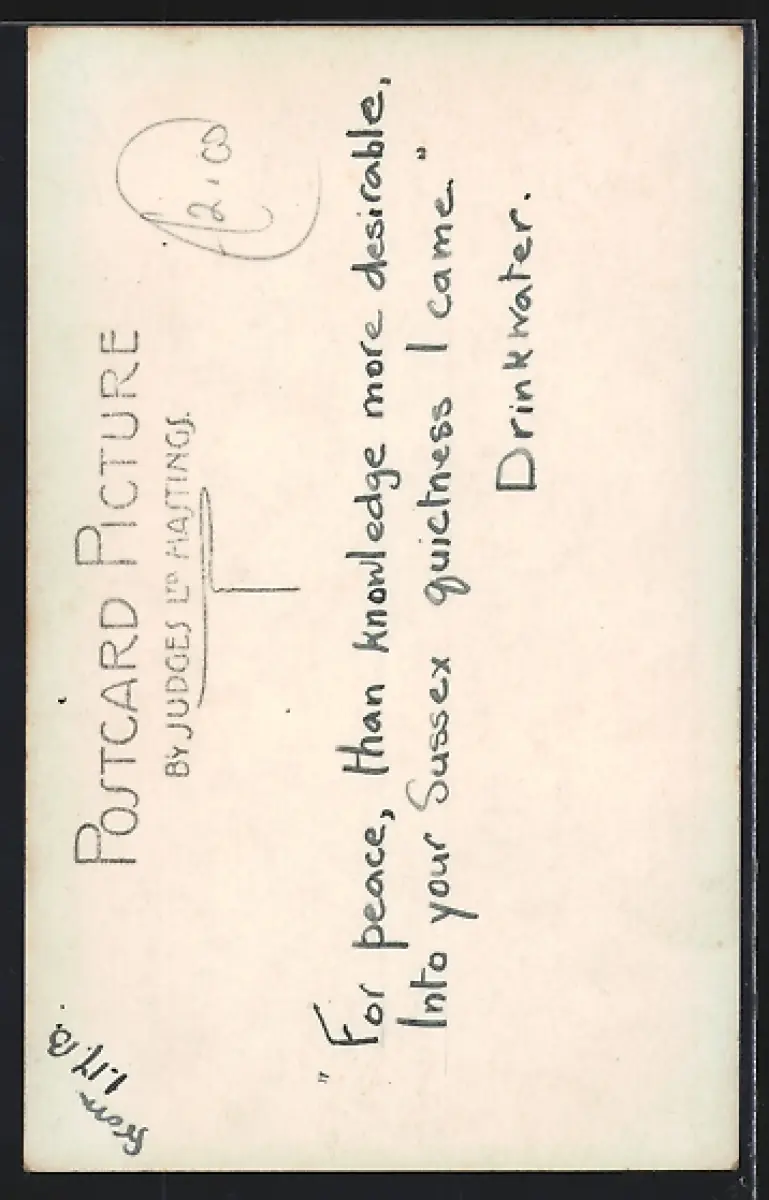 POSTCARD PICTURE
BY JUDGES LTD HASTINGS.
12.00
"For peace, than knowledge more desirable,
Into your Sussex quietness I came"
Drinkwater.
from